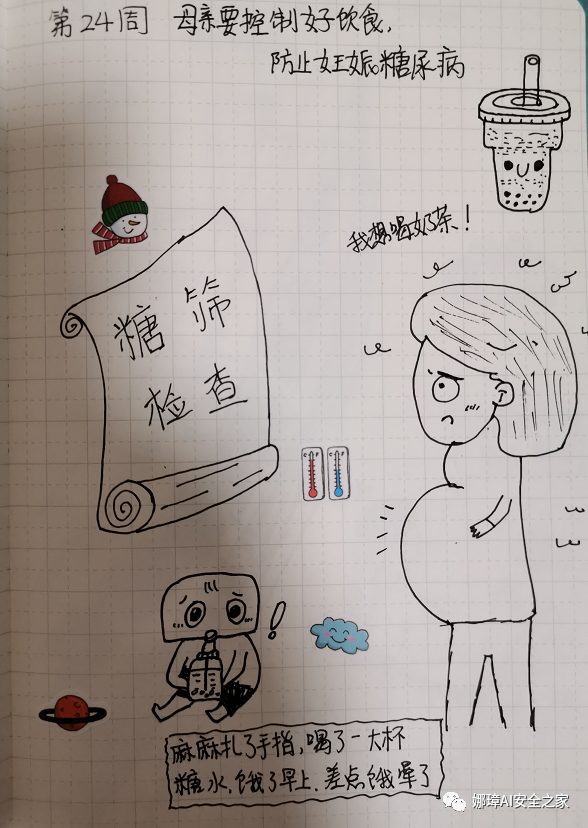 第24周 母亲要控制好饮食,
防止妊娠糖尿病
我想喝奶茶!
糖筛
检查
麻麻扎了手指,喝了一大杯
糖水,饿了早上,差点饿晕了
娜璋AI安全之家